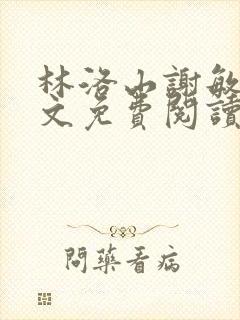 林洛山謝敏
文免費閱讀
問藥看病